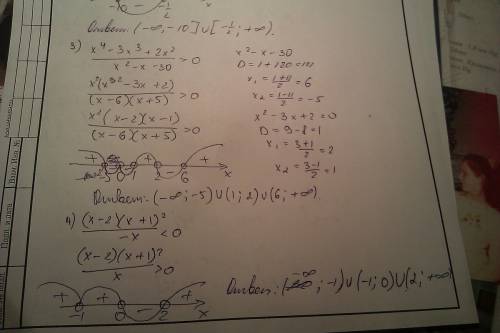 Ответ: (-∞; -10] ∪ [-1/2; +∞).
3) (x⁴ - 3x³ + 2x²)/(x² - x - 30) > 0
x²(x² - 3x + 2)/((x-6)(x+5)) > 0
x²(x-2)(x-1)/((x-6)(x+5)) > 0
x² - x - 30
D = 1 + 120 = 121
x₁ = (1+11)/2 = 6
x₂ = (1-11)/2 = -5
x² - 3x + 2 = 0
D = 9 - 8 = 1
x₁ = (3+1)/2 = 2
x₂ = (3-1)/2 = 1
+ - + - +
0 1 2 6 x
Ответ: (-∞; -5) ∪ (1; 2) ∪ (6; +∞).
4) (x-2)(x+1)²/(-x) < 0
(x-2)(x+1)²/x > 0
+ + - +
-1 0 2 x
Ответ: (-∞; -1) ∪ (-1; 0) ∪ (2; +∞